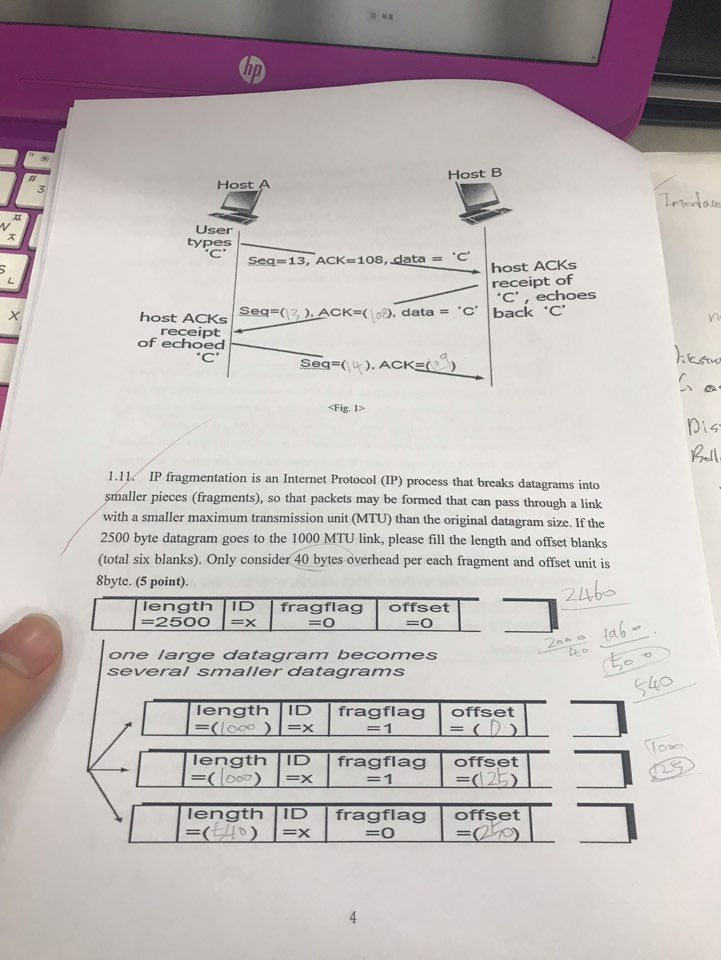 hp
Host A
Host B
User
types
'C'
Seq=13, ACK=108, data = 'C'
host ACKs
receipt of
'C', echoes
back 'C'
Seq=(13), ACK=(108), data = 'C'
host ACKs
receipt
of echoed
'C'
Seq=(14), ACK=(09)
<Fig. 1>
1.11. IP fragmentation is an Internet Protocol (IP) process that breaks datagrams into
smaller pieces (fragments), so that packets may be formed that can pass through a link
with a smaller maximum transmission unit (MTU) than the original datagram size. If the
2500 byte datagram goes to the 1000 MTU link, please fill the length and offset blanks
(total six blanks). Only consider 40 bytes overhead per each fragment and offset unit is
8byte. (5 point).
2460
length ID fragflag offset
=2500 =x =0 =0
2000
40
500
540
one large datagram becomes
several smaller datagrams
length ID fragflag offset
=(1000) =x =1 =(0)
1000
125
length ID fragflag offset
=(1000) =x =1 =(125)
length ID fragflag offset
=(540) =x =0 =(250)
4